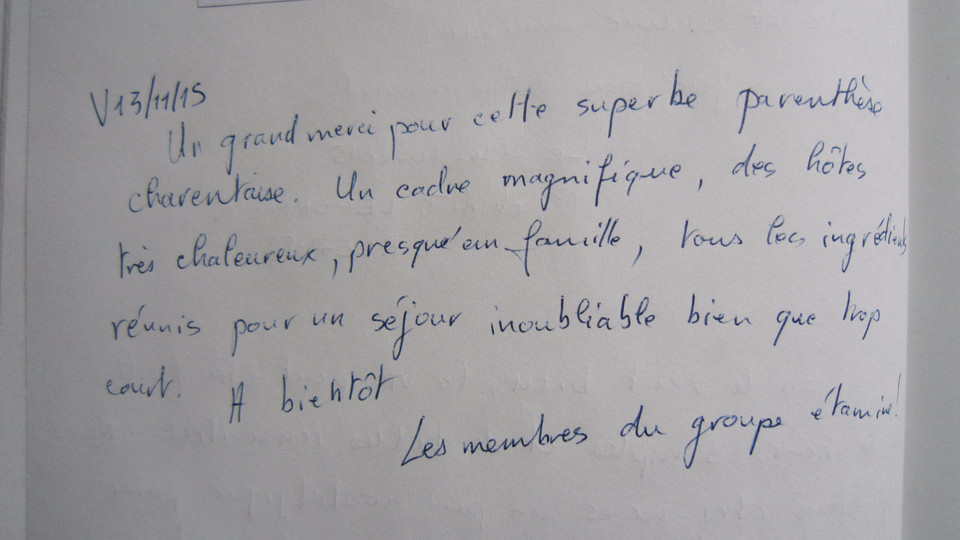 V13/11/15
Un grand merci pour cette superbe parenthèse
charentaise. Un cadre magnifique, des hôtes
très chaleureux, presqu'en famille, tous les ingrédients
réunis pour un séjour inoubliable bien que trop
court. A bientôt
Les membres du groupe étamine!